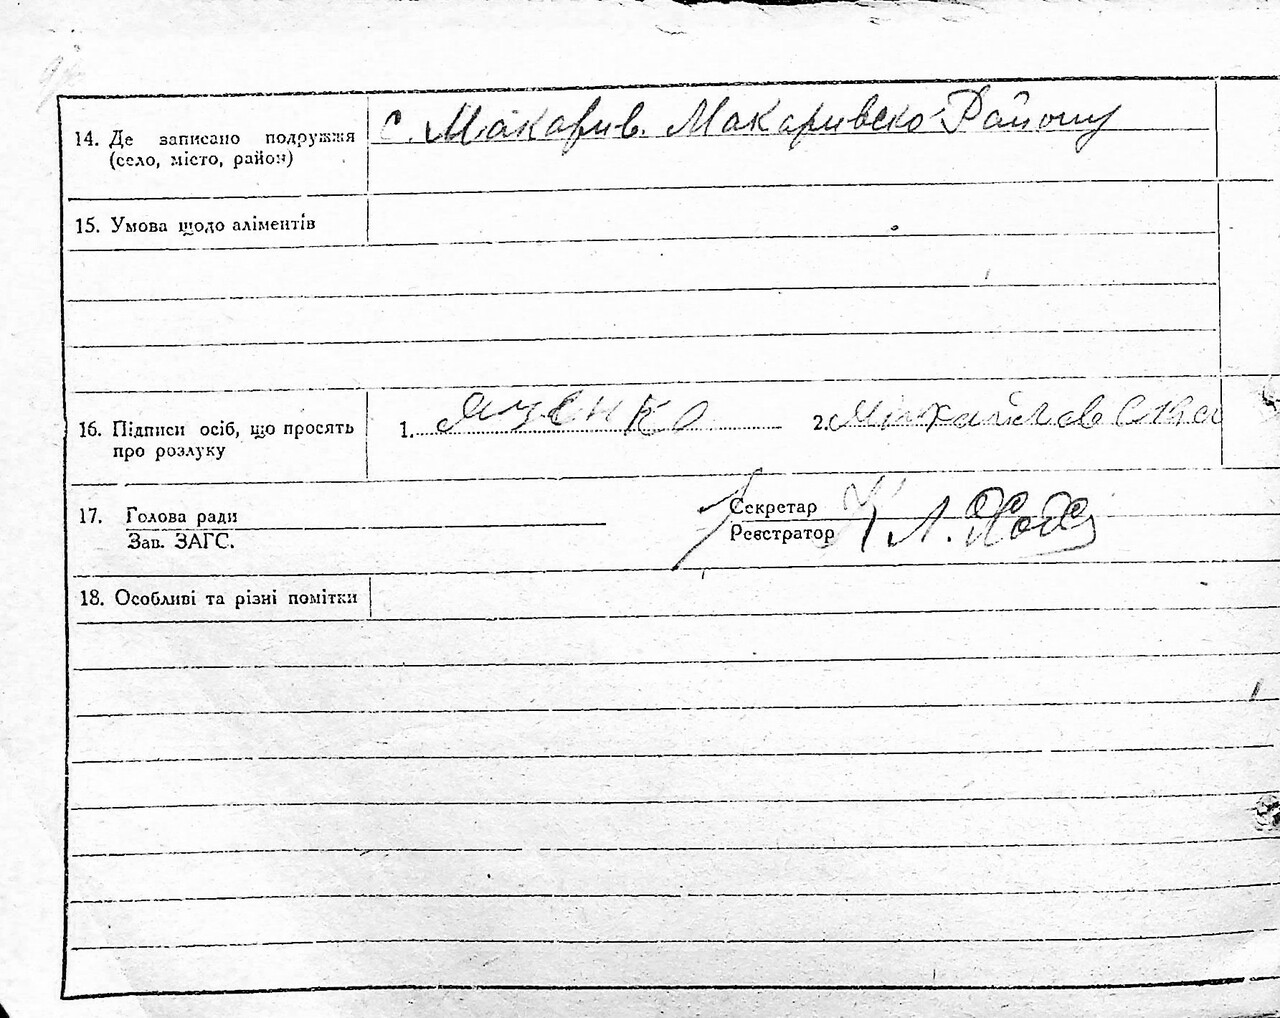 14. Де записано подружжя
(село, місто, район)
с. Макарив. Макаривско Району
15. Умова щодо аліментів
16. Підписи осіб, що просять
про розлуку
1. Яценко 2. Михайловская
17. Голова ради
Зав. ЗАГС.
Секретар
Реєстратор
18. Особливі та різні помітки